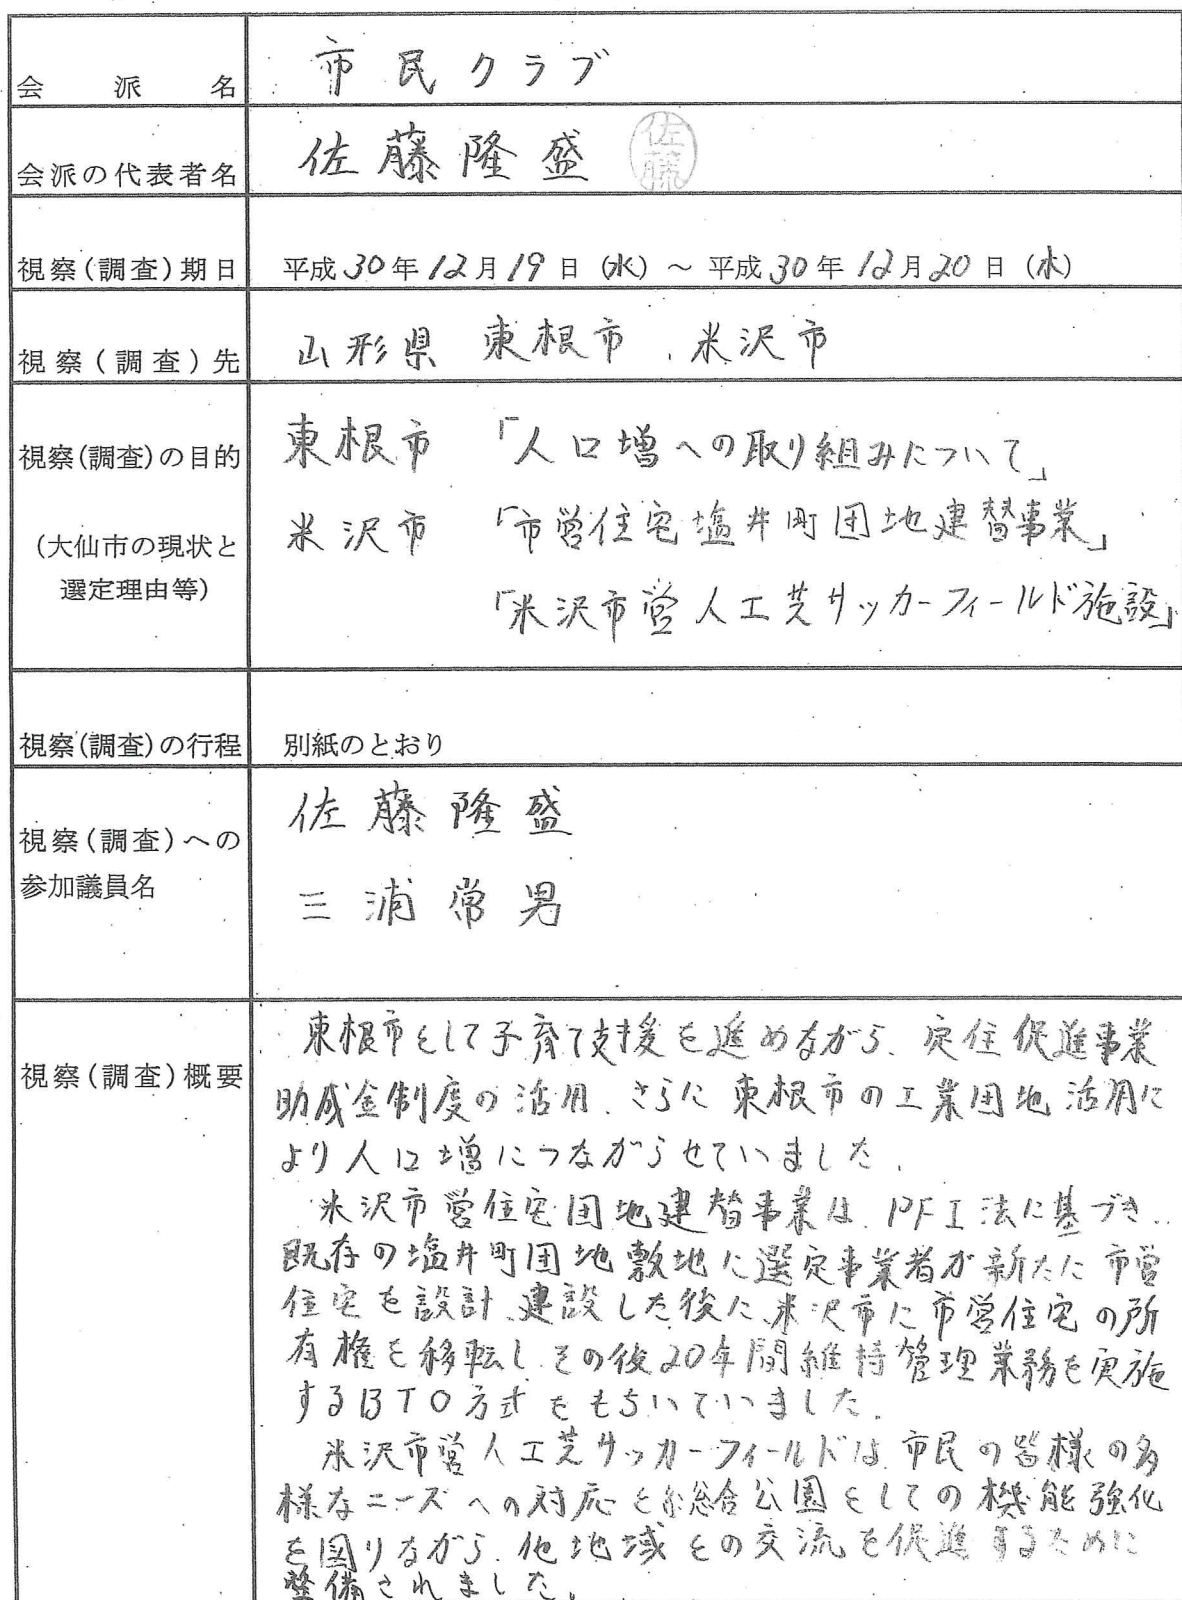 会派名 市民クラブ
会派の代表者名 佐藤隆盛 佐藤
視察(調査)期日 平成30年12月19日(水)～平成30年12月20日(木)
視察(調査)先 山形県 東根市、米沢市
視察(調査)の目的 東根市 「人口増への取り組みについて」
(大仙市の現状と 米沢市 「市営住宅塩井町団地建替事業」
選定理由等) 「米沢市営人工芝サッカーフィールド施設」
視察(調査)の行程 別紙のとおり
視察(調査)への 佐藤隆盛
参加議員名 三浦常男
視察(調査)概要
東根市として子育て支援を進めながら、定住促進事業
助成金制度の活用、さらに東根市の工業団地活用に
より人口増につながらせていました。
米沢市営住宅団地建替事業は、PFI法に基づき、
既存の塩井町団地敷地に選定事業者が新たに市営
住宅を設計、建設した後に、米沢市に市営住宅の所
有権を移転し、その後20年間維持管理業務を実施
するBTO方式をもちいていました。
米沢市営人工芝サッカーフィールドは、市民の皆様の多
様なニーズへの対応と総合公園としての機能強化
を図りながら、他地域との交流を促進するために
整備されました。